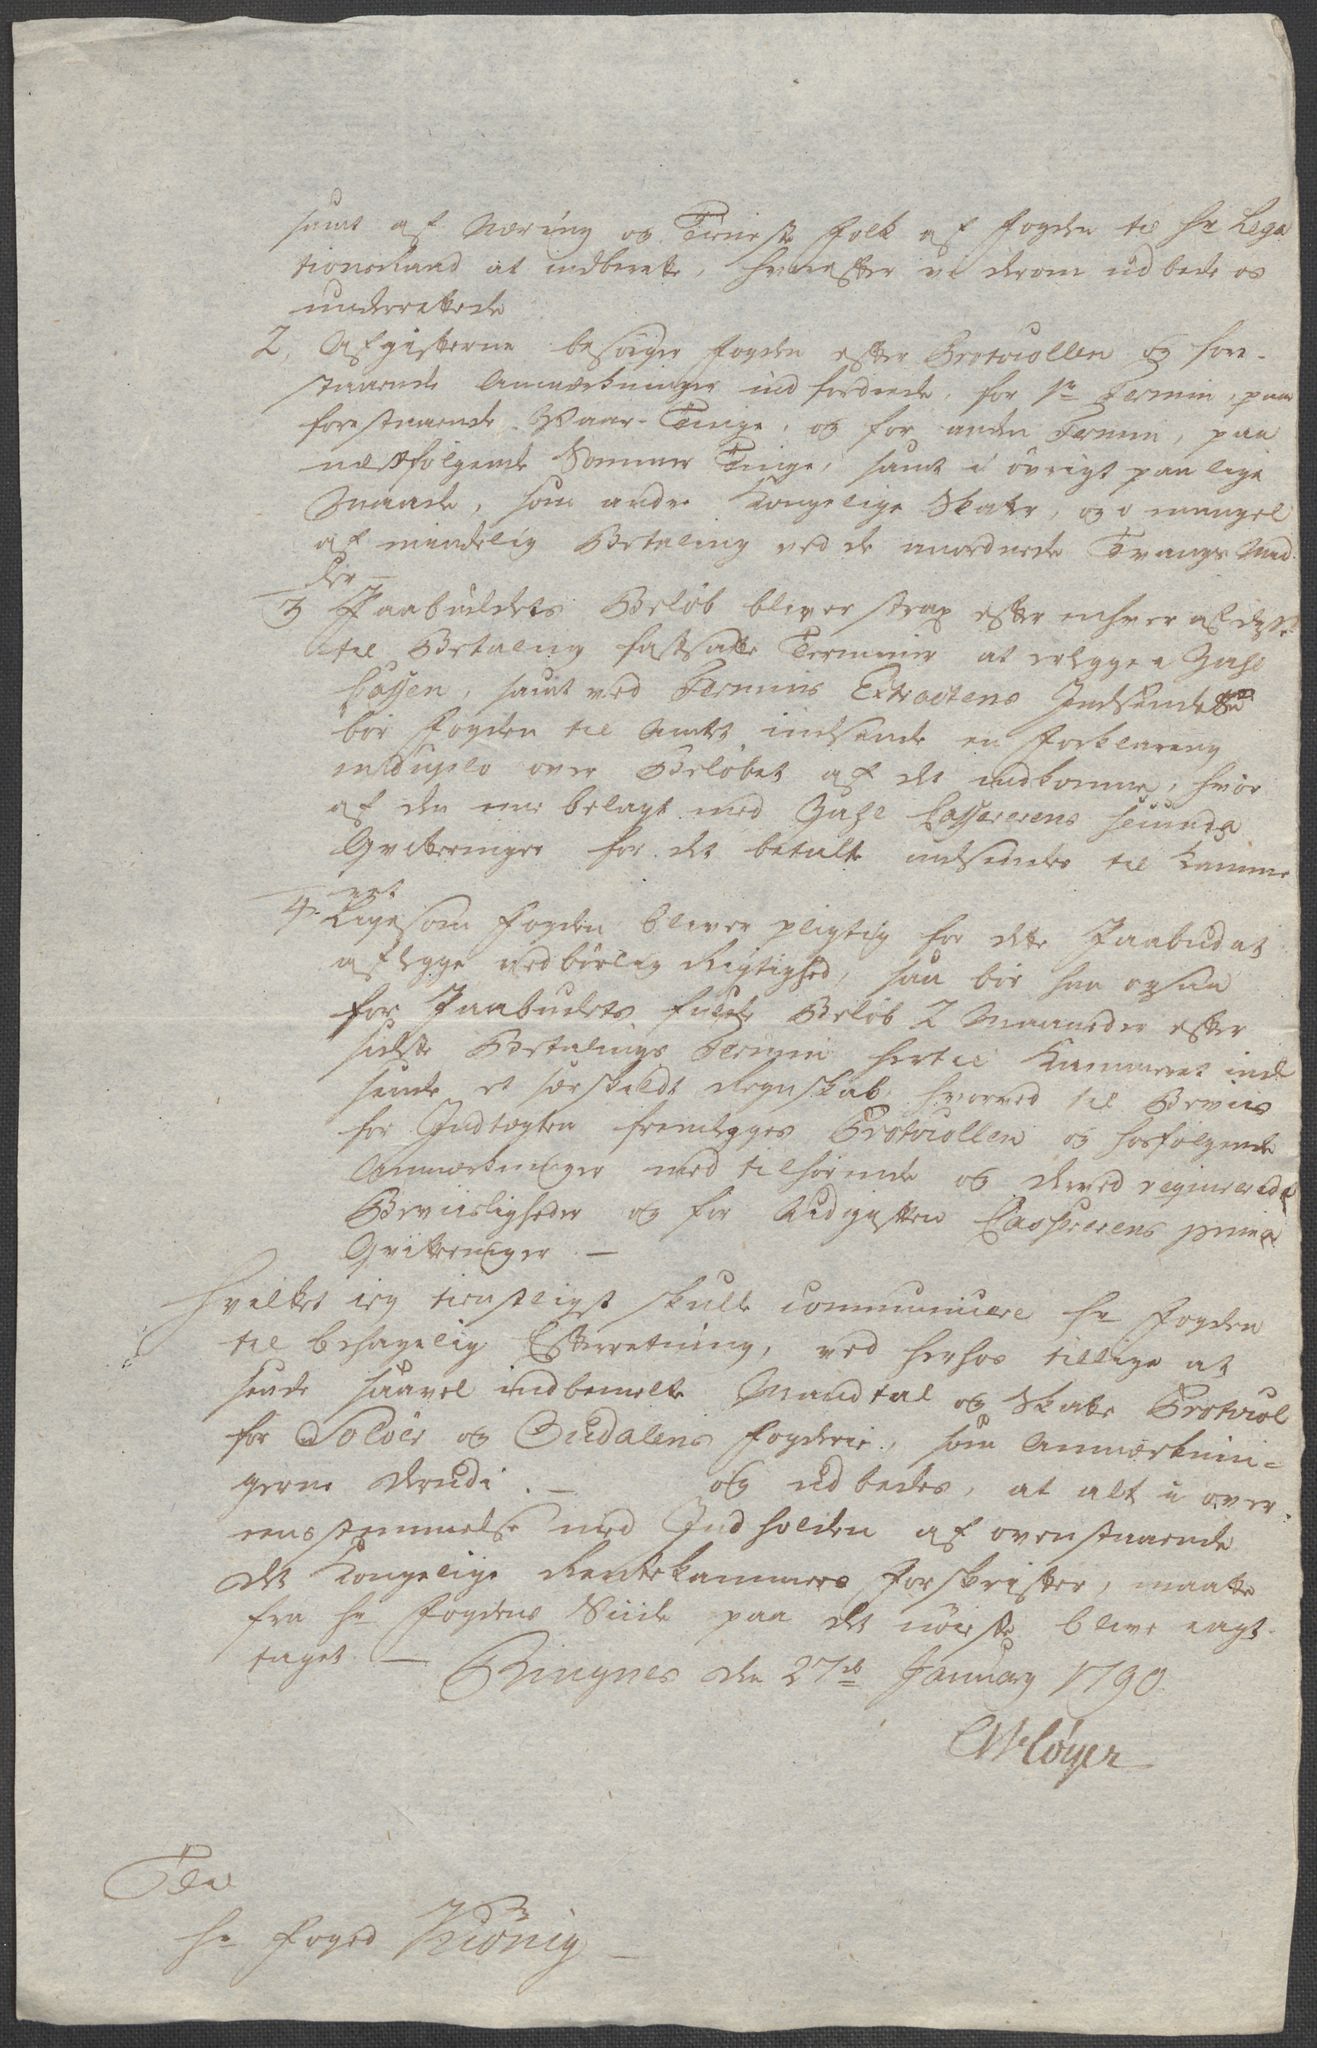 samt af Næring og Tieneste Folk af Fogden til Hr Lega
tionsraad at indberette, hvorefter vi derom udbede os
underrettede
2, Afgifterne besørger Fogden efter Protocollen og fore-
staaende Anmærkninger indfordrede, for 1te Termin, paa
forestaaende Vaar-Tinge, og for anden Termin, paa
næstfølgende Sommer Tinge, samt i øvrigt paa lige
Maade, som andre Kongelige Skatter, og i mangel
af mindelig Betaling ved de anordnede Tvangs Mid-
ler —
3 Paabudets Beløb bliver strax efter enhver af disse
til Betaling fastsatte Terminer at erlegge i Zahl
Cassen, samt ved Termins Extractens Indsendelse
bør Fogden til Amtet indsende en Forklaring
in duplo over Beløbet af det indkomne, hvor
af den ene belagt med Zahl Casserens secunda
Qvitteringer for det betalte indsendes til Kamme
ret
4. Ligesom Fogden bliver pligtig for dette Paabud at
aflegge vedbørlig Rigtighed, saa bør han ogsaa
for Paabudets fulde Beløb 2 Maaneder efter
sidste Betalings Termin hertil Kammeret ind
sende et særskildt Regnskab, hvorved til Beviis
for Indtægten fremlegges Protocollen og hosfølgende
Anmærkninger med tilhørende og derved reqvirerede
Beviisligheder og for Udgiften Casserens prima
Qvitteringer. —
Hvilket ieg tienstligst skulle communicere Hr Fogden
til behagelig Efterretning, ved herhos tillige at
sende saavel indbemelte Mandtal og Skatte Protocol
for Soløer og Oudalens Fogderie, som Anmærknin-
gerne derudi. — og udbedes, at alt i over-
eensstemmelse med Indholden af ovenstaaende
det Kongelige Rentekammers Forskrifter, maatte
fra Hr Fogdens Siide paa det nøieste blive iagt-
taget. — Ringnes den 27de January 1790
Til
Hr Foged Kiønig —